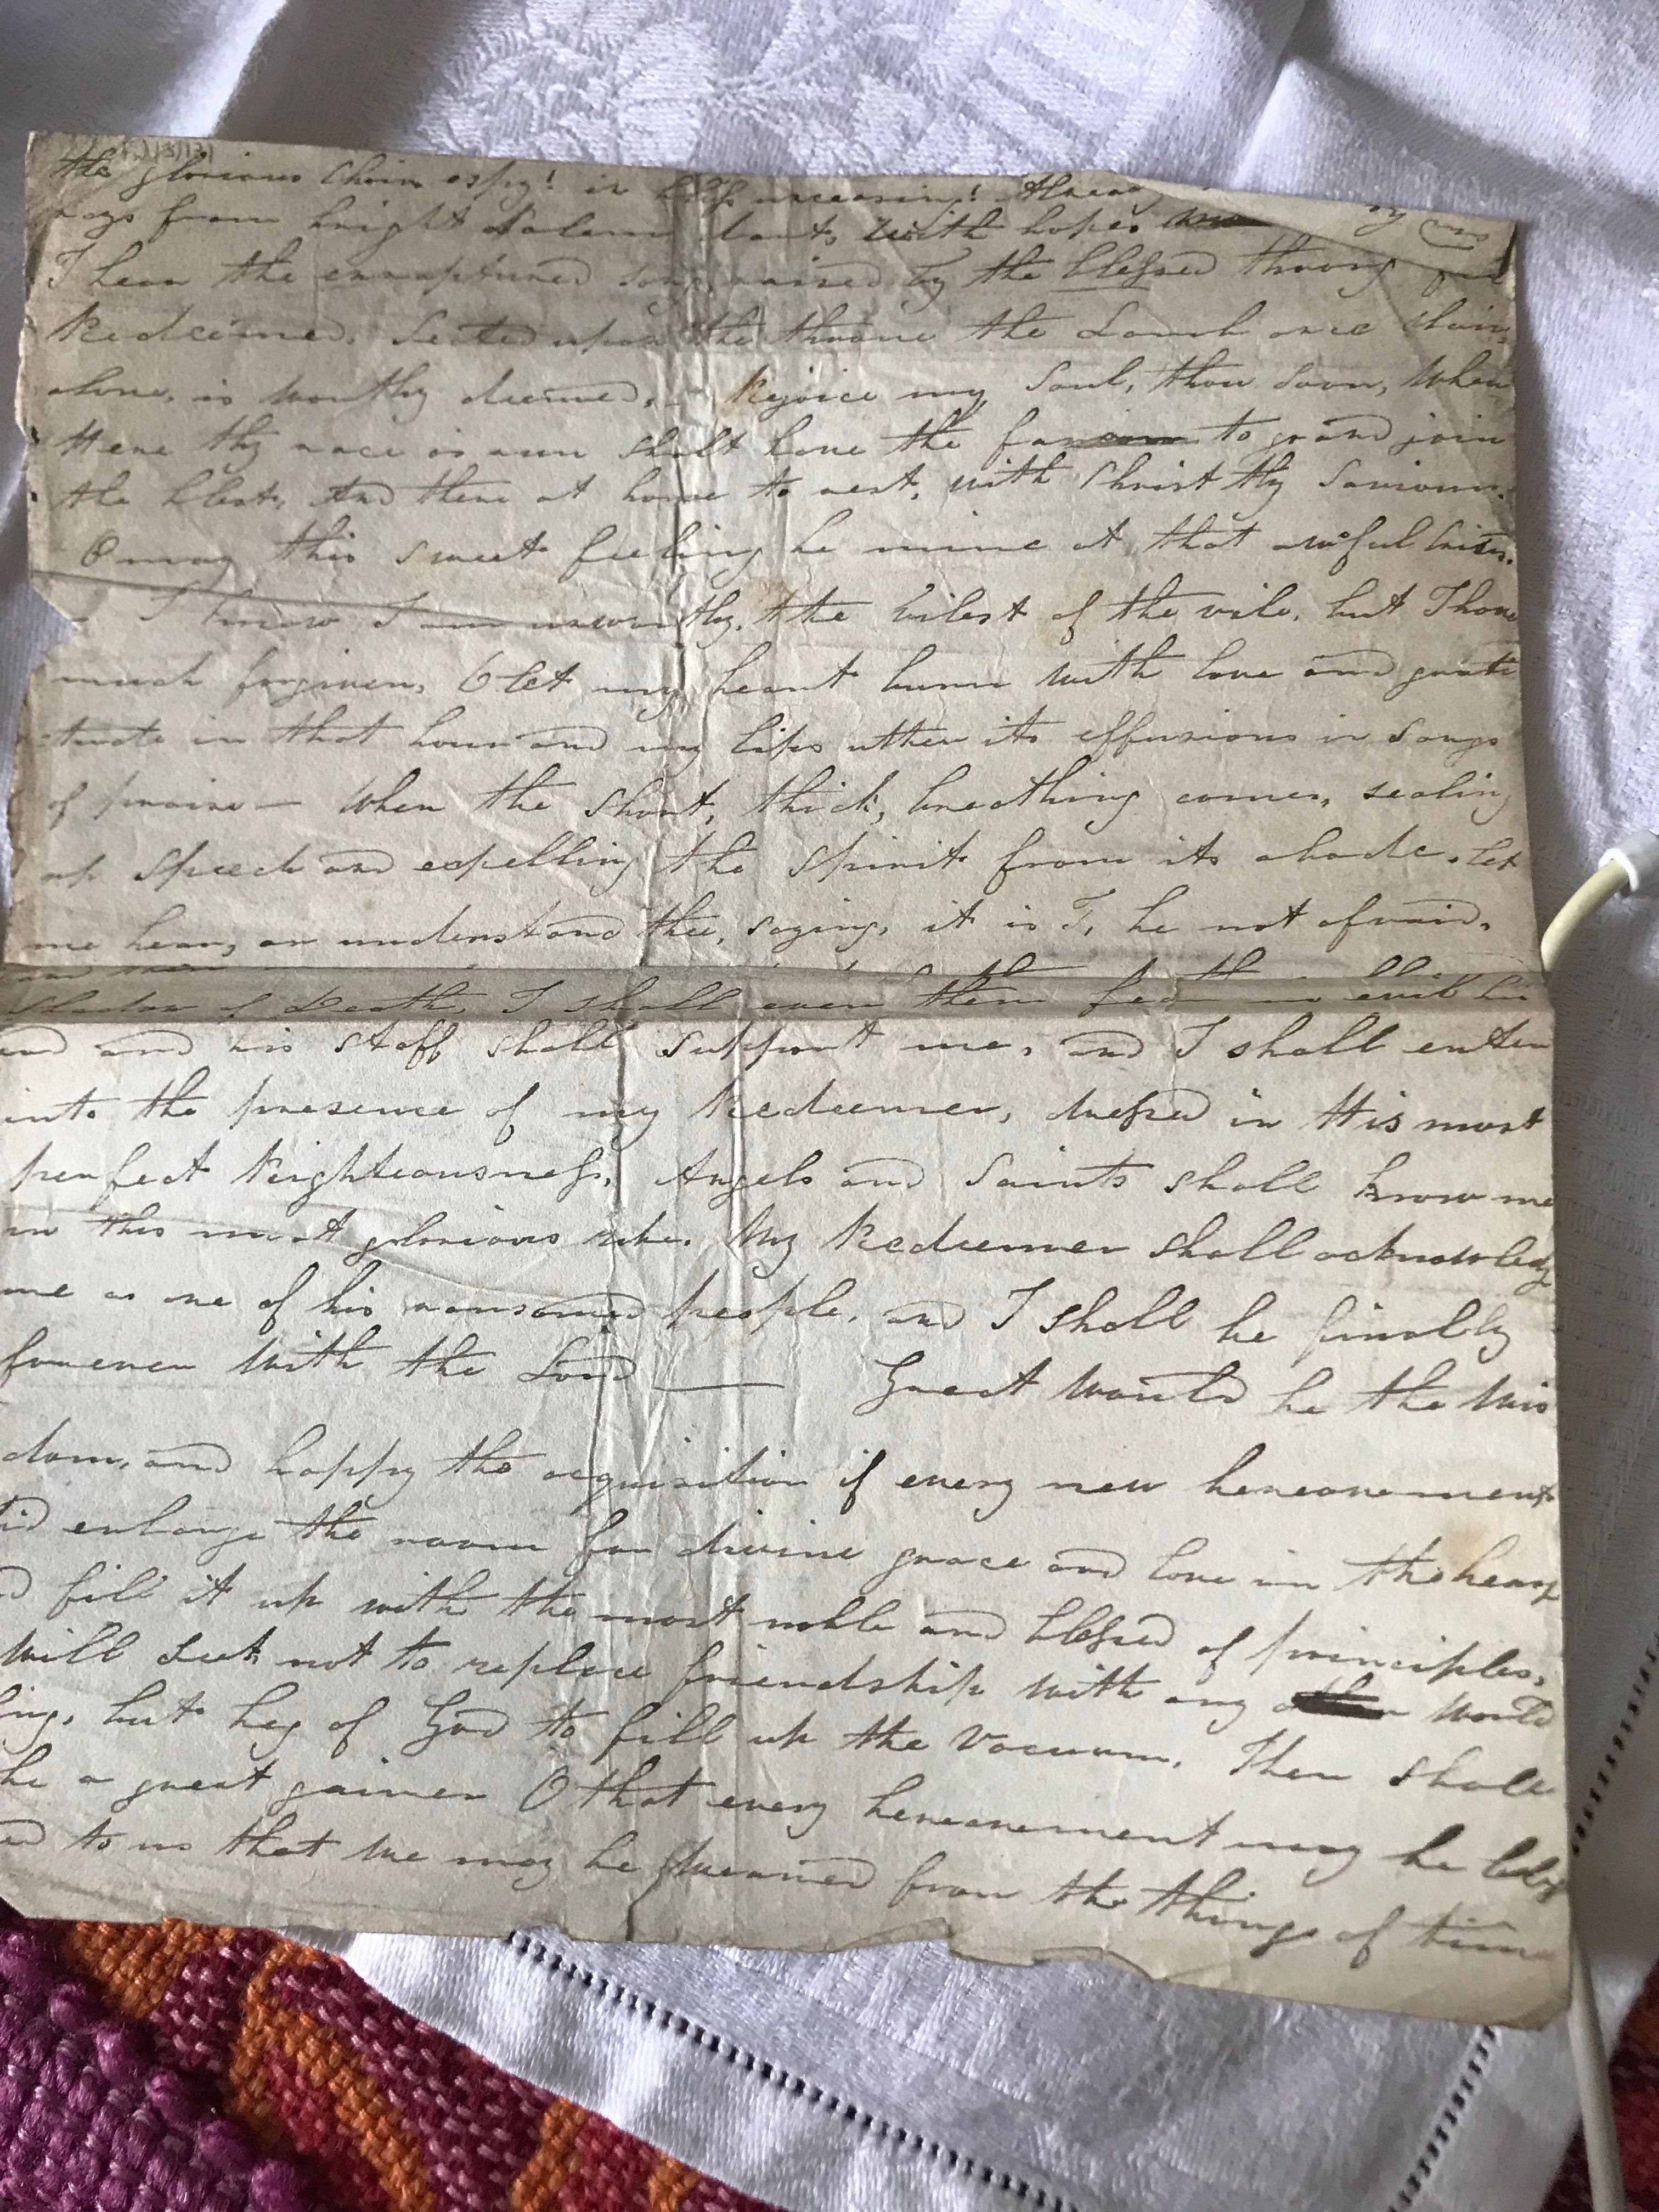 the glorious Choir espy! in bliss unceasing! Already
rays from bright Salem dart, with hopes
I hear the enraptured song raised by the blessed throng
Redeemed. Seated upon the throne the Lamb once slain,
alone, is worthy deemed, - Rejoice my Soul, thou soon, when
Here thy race is run shalt have the favour to go and join
the blest, And there at home to rest, with Christ thy Saviour.
O may this sweet feeling be mine at that awful
I know I am unworthy, the vilest of the vile, but I have
much forgiven, O let my heart burn with love and grati
tude in that hour and my lips utter its effusions in songs
of praise - When the short, thick, breathing comes, sealing
up speech and expelling the spirit from its abode. Let
me hear, or understand thee, saying, it is I, be not afraid.
shadow of Death, I shall even then fear no evil his
and his staff shall support me, and I shall enter
into the presence of my Redeemer, dressed in His most
perfect Righteousness, Angels and Saints shall know me
in this most glorious robe. My Redeemer shall acknowledg
me as one of his ransomed people, and I shall be finally
forever with the Lord — Great would be the wis
dom, and happy the acquisition if every new bereavement
did enlarge the room for divine grace and love in the heart
fill it up with the most noble and blessed of principles,
will seek not to replace friendship with any other world
ling, but beg of God to fill up the vacuum. Then shall
be a great gainer O that every bereavement may be
to us that we may be weaned from the things of time